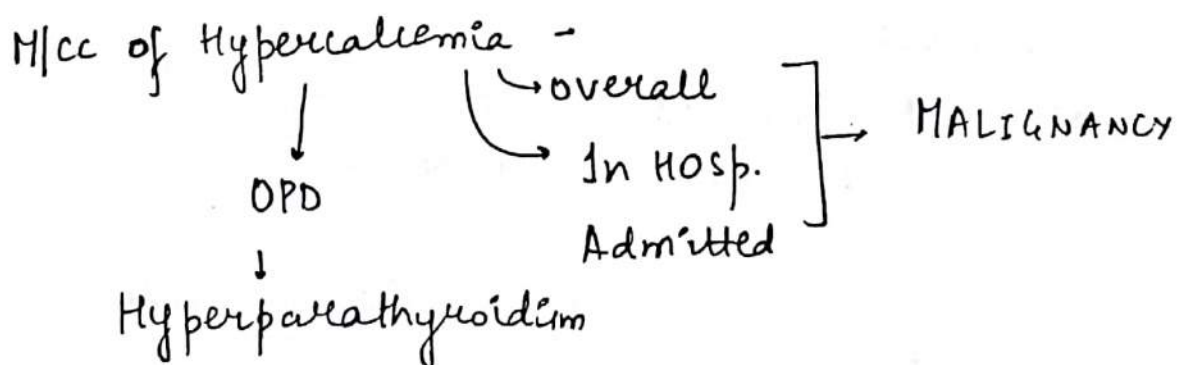 M/CC of Hypercalcemia -
overall
In Hosp.
Admitted
MALIGNANCY
OPD
Hyperparathyroidism